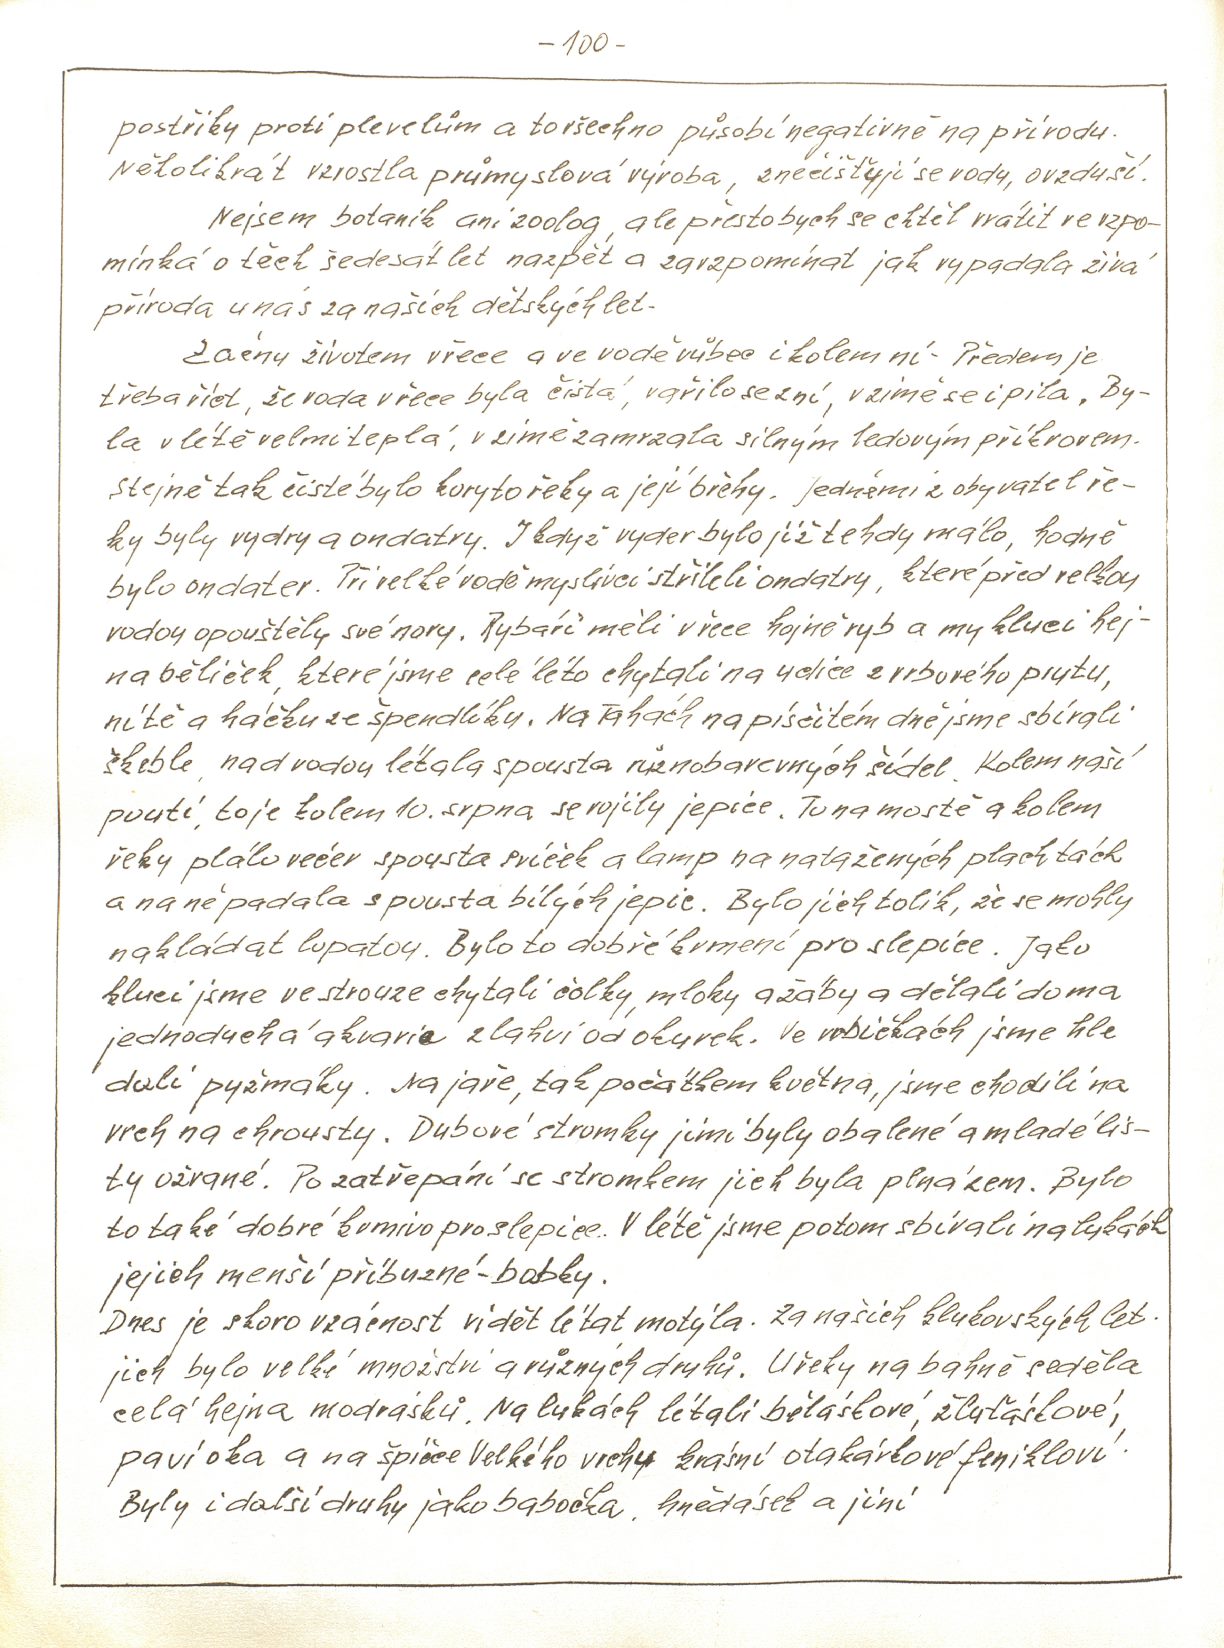 - 100 -
postřiky proti plevelům a to všechno působí negativně na přírodu.
Několikrát vzrostla průmyslová výroba, znečišťují se vody, ovzduší.
Nejsem botanik ani zoolog, ale přesto bych se chtěl vrátit ve vzpo-
mínká o těch šedesát let nazpět a zavzpomínat jak vypadala živá
příroda u nás za našich dětských let.
Začnu životem v řece a ve vodě vůbec i kolem ní. Předem je
třeba říct, že voda v řece byla čistá, vařilo se z ní, v zimě se i pila. By-
la v létě velmi teplá, v zimě zamrzala silným ledovým příkrovem.
Stejně tak čisté bylo koryto řeky a její břehy. Jedněmi z obyvatel ře-
ky byly vydry a ondatry. I když vyder bylo již tehdy málo, hodně
bylo ondater. Při velké vodě myslivci stříleli ondatry, které před velkou
vodou opouštěly své nory. Rybáři měli v řece hojně ryb a my kluci hej-
na běliček, které jsme celé léto chytali na udice z vrbového prutu,
nitě a háčku ze špendlíku. Na Tahách na písčitém dně jsme sbírali
škeble, nad vodou létala spousta různobarevných šídel. Kolem naší
pouti, to je kolem 10. srpna se rojily jepice. Tu na mostě a kolem
řeky plálo večer spousta svíček a lamp na natažených plachtách
a na ně padala spousta bílých jepic. Bylo jich tolik, že se mohly
nakládat lopatou. Bylo to dobré krmení pro slepice. Jako
kluci jsme ve strouze chytali čolky, mloky a žáby a dělali doma
jednoduchá akvaria z lahví od okurek. Ve vrbičkách jsme hle
dali pyžmáky. Na jaře, tak počátkem května, jsme chodili na
vrch na chrousty. Dubové stromky jimi byly obalené a mladé lis-
ty ožrané. Po zatřepání se stromkem jich byla plná zem. Bylo
to také dobré krmivo pro slepice.. V létě jsme potom sbírali na lukách
jejich menší příbuzné - babky.
Dnes je skoro vzácnost vidět létat motýla. Za našich klukovských let.
jich bylo velké množství a různých druhů. U řeky na bahně seděla
celá hejna modrásků. Na lukách létali běláskové, žluťáskové,
paví oka a na špičce Velkého vrchu krásní otakárkové fenikloví.
Byly i další druhy jako babočka, hnědásek a jiní